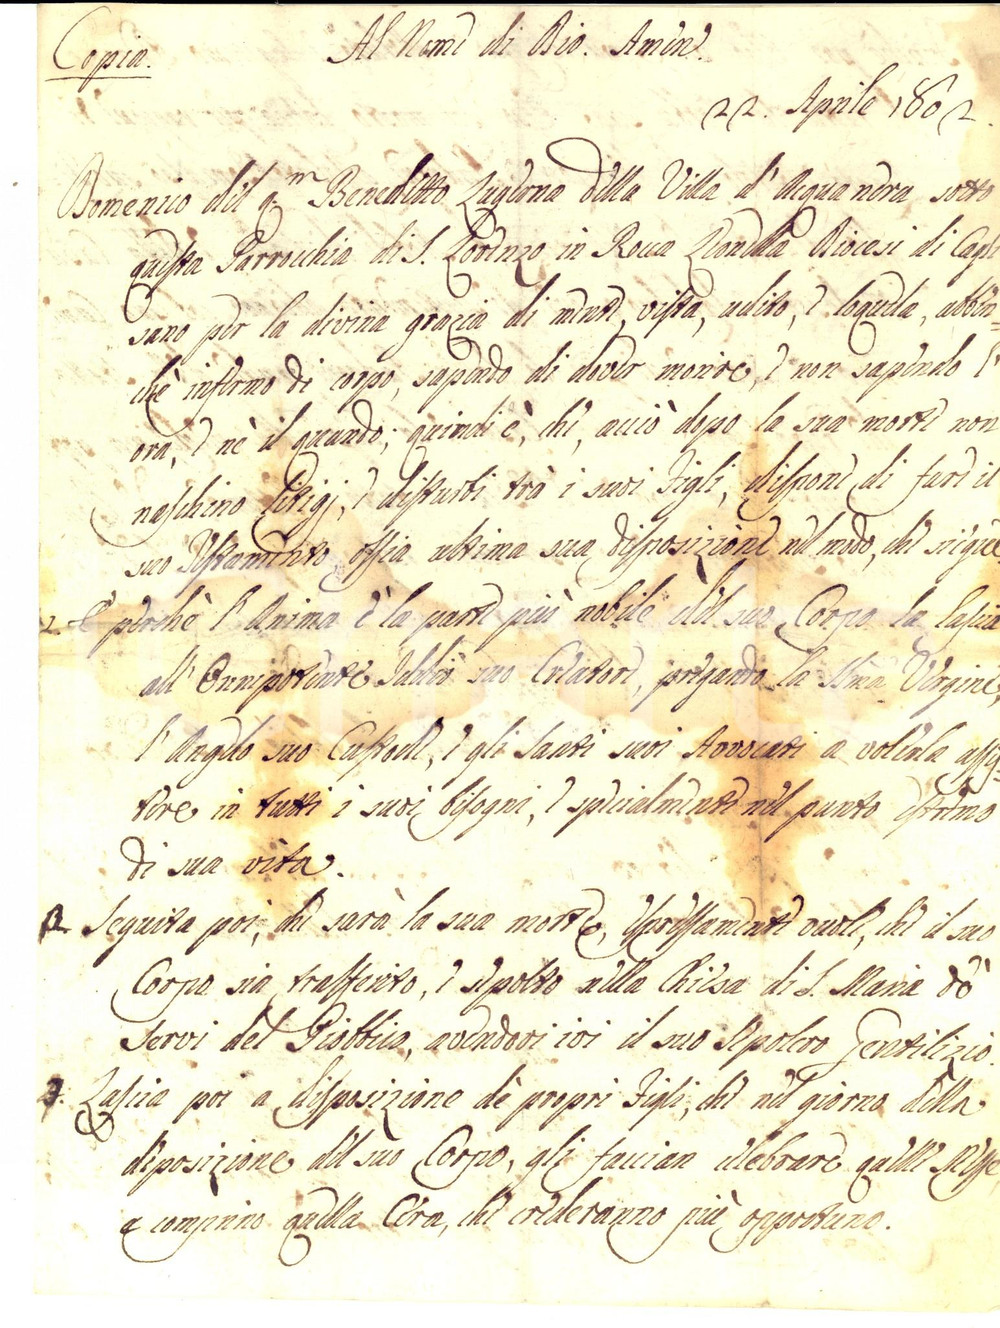 Copia.
Al Nome di Dio. Amen.
22. Aprile 1802.
Domenico del q.m Benedetto Luzerna della Villa d'Acqua nera sotto
questa Parrocchia di S. Lorenzo in Rocca Leonella Diocesi di Cagli
sano per la divina grazia di mente, vista, udito, e loquela, abben-
chè infermo di corpo, sapendo di dover morire, e non sapendo l'
ora, e nè il quando; quindi è, che, acciò dopo la sua morte non
naschino Litigj, e disturbi trà i suoi Figli, dispone di fare il
suo Testamento, ossia ultima sua disposizione nel modo, che siegue
E perchè l'Anima è la parte più nobile del suo Corpo la lascia
all'Onnipotente Iddio suo Creatore, pregando la Sma Vergine,
l'Angelo suo Custode, e gli Santi suoi Avvocati a volerla assis-
tere in tutti i suoi bisogni, e specialmente nel punto estremo
di sua vita.
2. Seguita poi, che sarà la sua morte, espressamente vuole, che il suo
Corpo sia trasferito, e sepolto nella Chiesa di S. Maria de'
Servi del Piobbico, avendovi ivi il suo Sepolcro Gentilizio.
3. Lascia poi a disposizione de' propri Figli, che nel giorno della
deposizione del suo Corpo, gli faccian celebrare quelle Messe,
e compino quella Cera, che crederanno più opportuno.